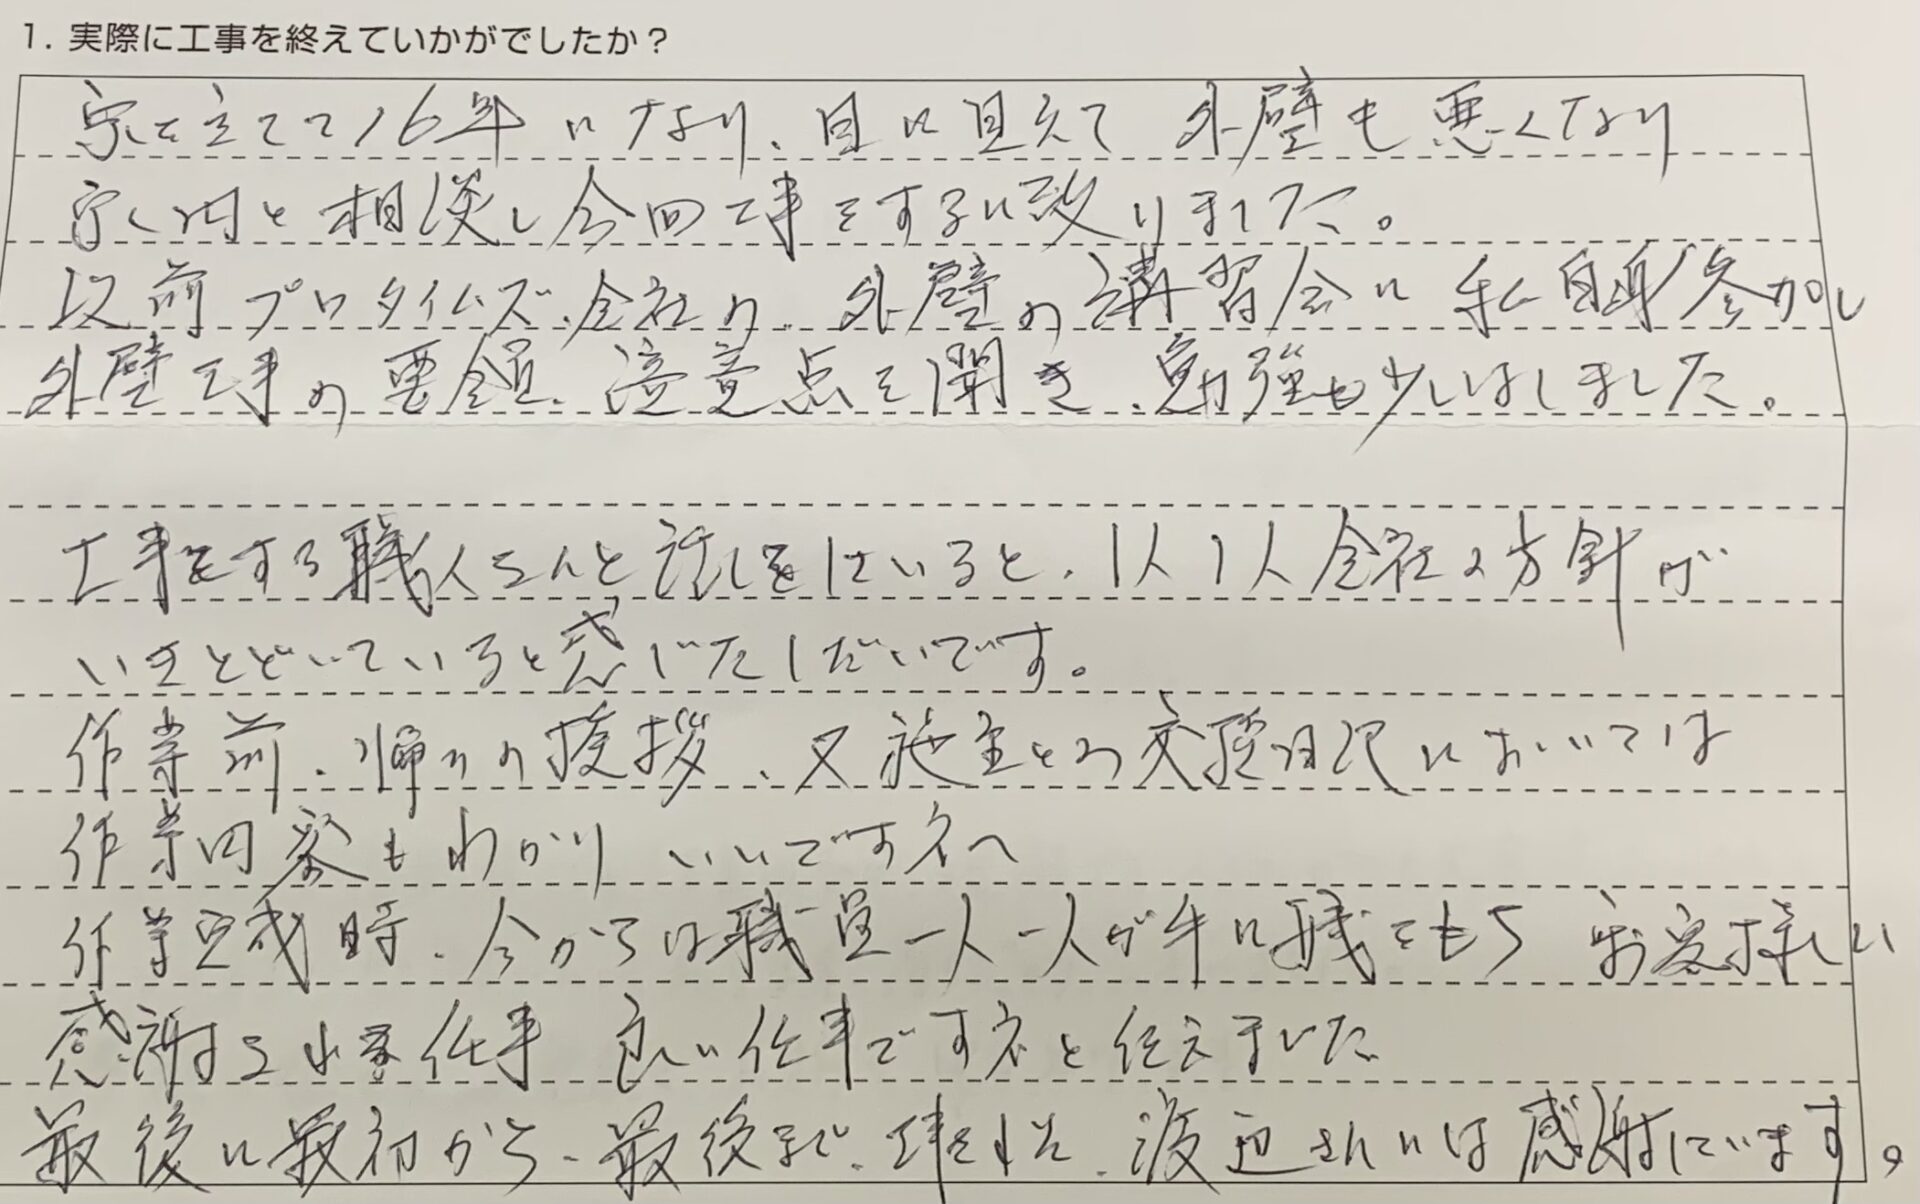 1. 実際に工事を終えていかがでしたか？
家を立てて16年になり、目に見えて 外壁も悪くなり
家内と相談し今回工事をするに致りました。
以前プロタイムズ、会社の、外壁の講習会に私自身参加し
外壁工事の要領、注意点を聞き、勉強も少しはしました。
工事をする職人さんと話しをしていると、1人1人会社の方針が
いきとどいていると感じたしだいです。
作業前、帰りの挨拶、又施主との交換日記においては
作業内容もわかり いいですネへ
作業完成時、今からは職員一人一人が手に職をもち お客様に
感謝される仕事 良い仕事ですネと伝えました
最後に最初から、最後まで、渡辺さんには感謝しています。